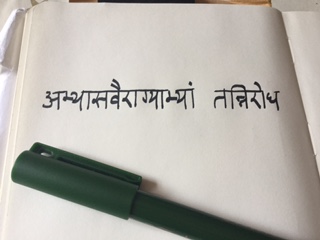 अभ्यासवैराग्याभ्यां तन्निरोध